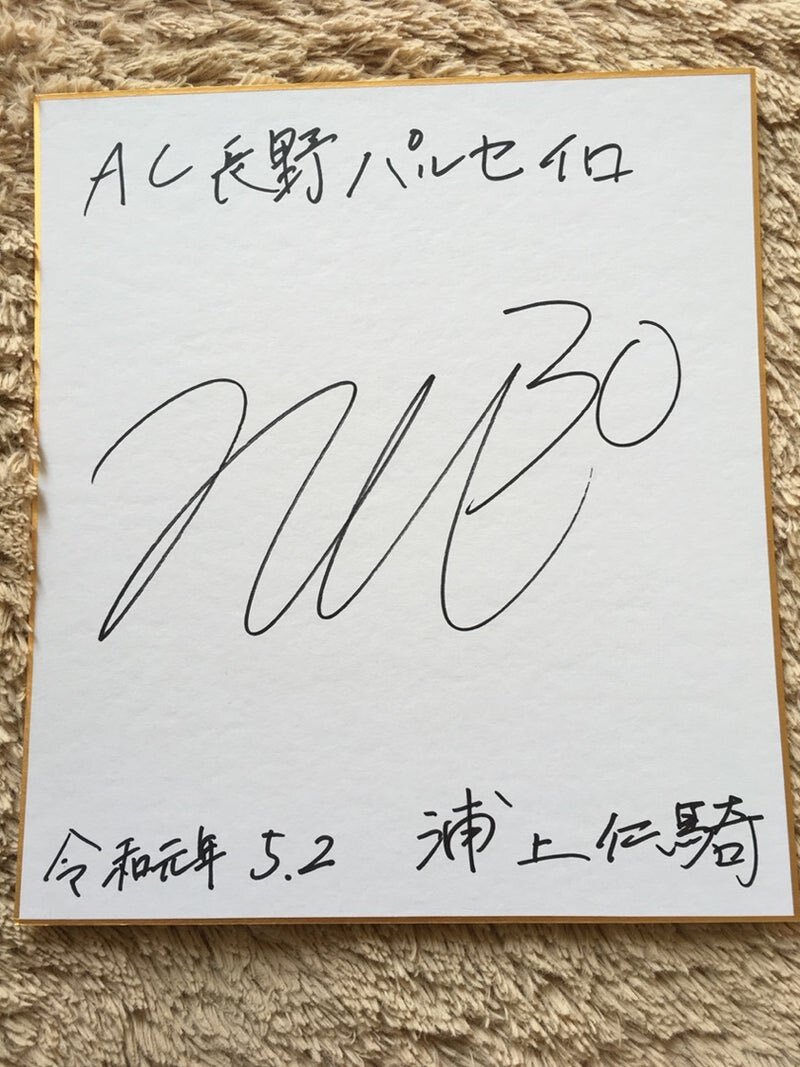 AC長野パルセイロ
30
令和元年 5.2 浦上仁騎